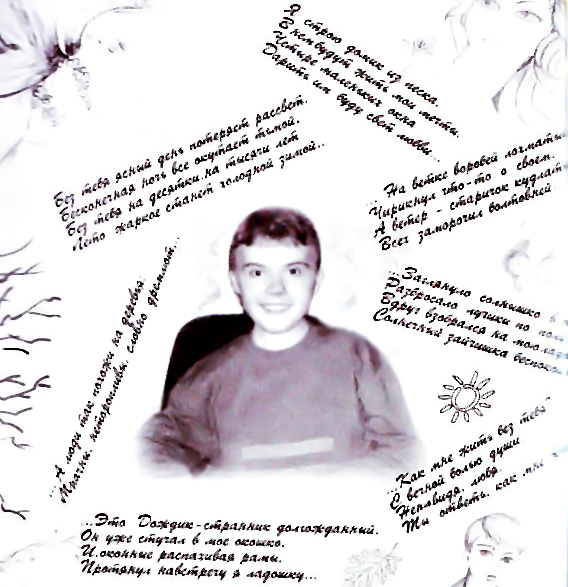 Я строю домик из песка.
В нем будут жить мои мечты.
Четыре маленьких окна
Дарить им буду свет любви...
Без тебя ясный день потеряет рассвет.
Бесконечная ночь все окутает тьмой.
Без тебя на десятки, на тысячи лет
Лето жаркое станет холодной зимой..
... На ветке воробей лохматый
Чирикнул что-то о своем.
А ветер - старичок
Всех заморочил болтовней.
...Заглянуло солнышко в
Разбросало лучики по
Вдруг взобрался на мою
Солнечный зайчишка
...А люди так похожи на деревья:
Мрачны, неторопливы, словно дремлют...
...Как мне жить без тебя
С вечной болью души
Ненавидя, любя.
Ты ответь, как мне
...Это Дождик-странник долгожданный.
Он уже стучал в мое окошко.
И оконные распахивая рамы.
Протянул навстречу я ладошку...